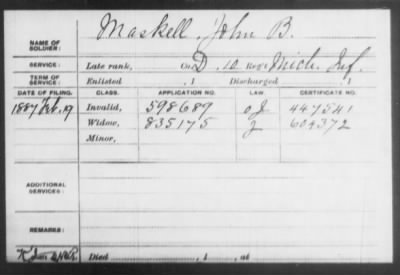 NAME OF SOLDIER: Maskell, John B.
SERVICE: Late rank, Co. D. 10 Reg't Mich. Inf.
TERM OF SERVICE: Enlisted , 1 Discharged , 1
DATE OF FILING. CLASS. APPLICATION NO. LAW. CERTIFICATE NO.
1887 Feb. 19 Invalid, 598689 447541
Widow, 835175 604372
Minor,
ADDITIONAL SERVICES:
REMARKS:
Died , 1 , at